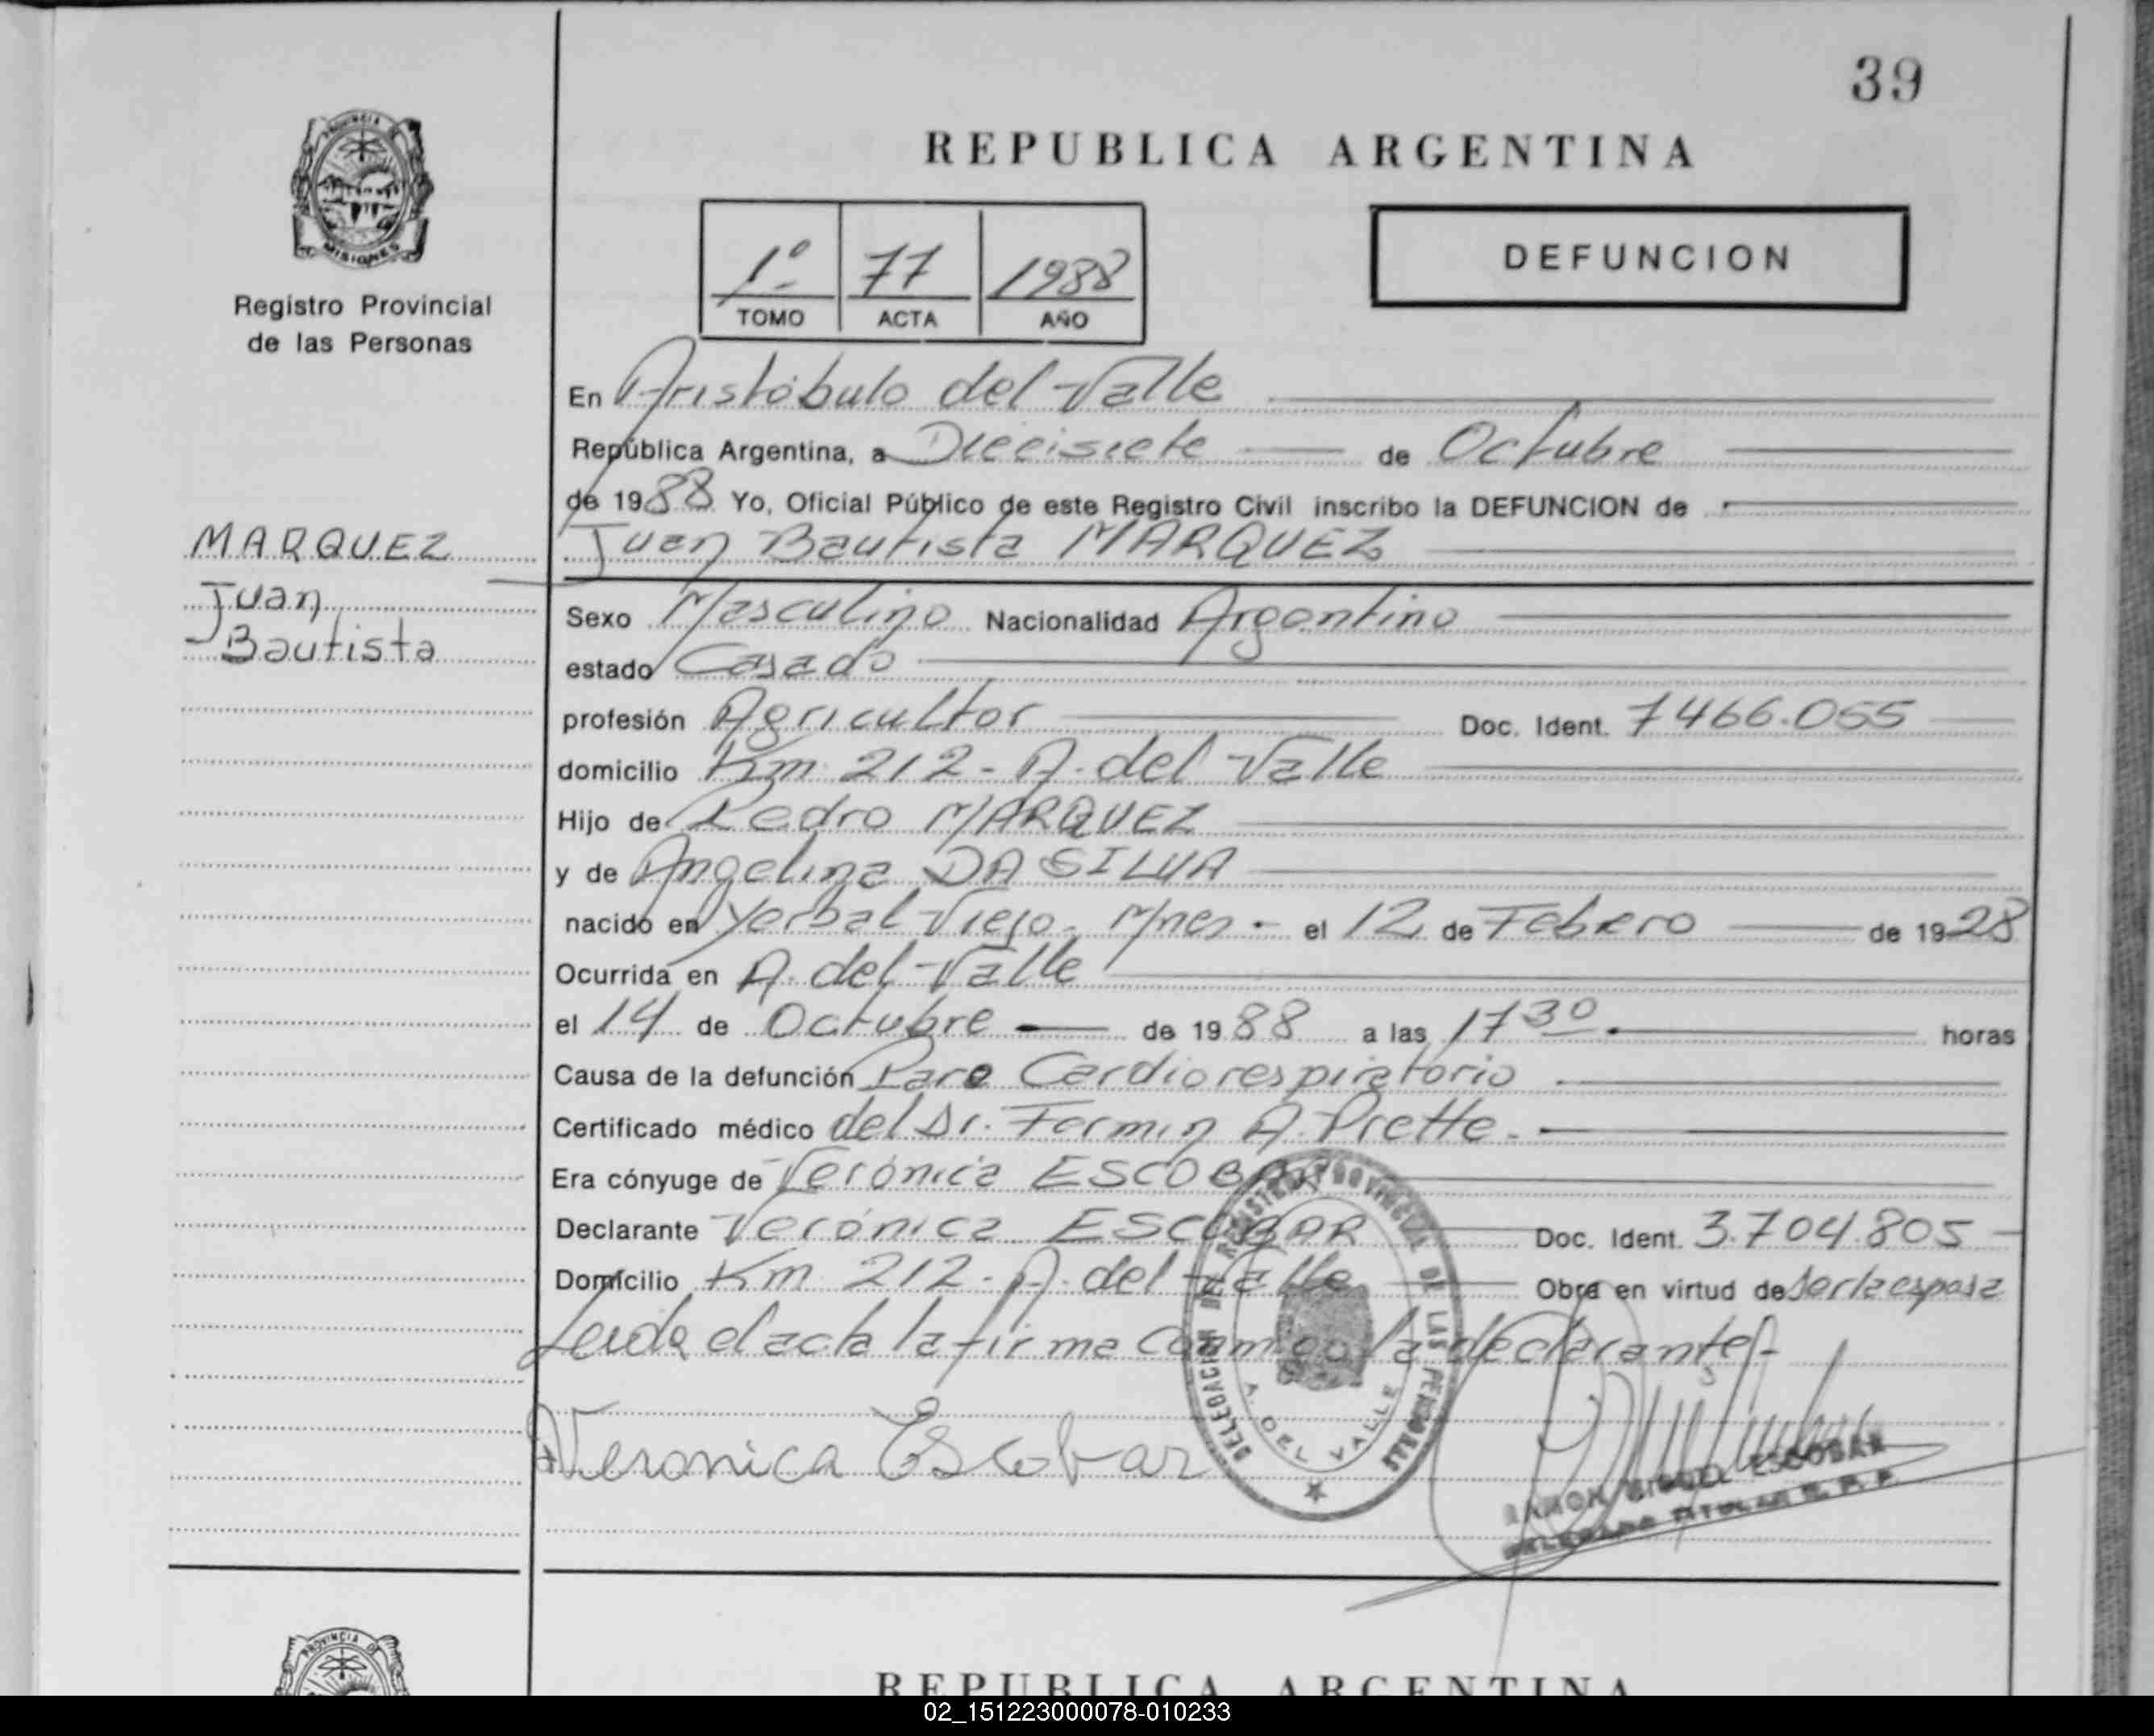 39
PROVINCIA DE
MISIONES
Registro Provincial
de las Personas
REPUBLICA ARGENTINA
1º 77 1988
TOMO ACTA AÑO
DEFUNCION
En Aristóbulo del Valle
República Argentina, a Diecisiete de Octubre
de 1988 Yo, Oficial Público de este Registro Civil inscribo la DEFUNCION de
Juan Bautista MARQUEZ
MARQUEZ
Juan
Bautista
Sexo Masculino Nacionalidad Argentino
estado Casado
profesión Agricultor Doc. Ident. 7466.055
domicilio Km 212 - A. del Valle
Hijo de Pedro MARQUEZ
y de Angelina DA SILVA
nacido en Yerbal Viejo - Mnes - el 12 de Febrero de 1928
Ocurrida en A. del Valle
el 14 de Octubre de 1988 a las 17 30 horas
Causa de la defunción Paro Cardiorespiratorio
Certificado médico del Dr. Fermin A. Prette.
Era cónyuge de Verónica ESCOBAR
Declarante Verónica ESCOBAR Doc. Ident. 3.704.805
Domicilio Km 212 - A. del Valle Obra en virtud de Ser la esposa
Leida el acta la firma conmigo la declarante
Veronica Escobar
DELEGACION DEL REGISTRO PROVINCIAL DE LAS PERSONAS
A. DEL VALLE
RAMON MIGUEL ESCOBAR
DELEGADO TITULAR R. P. P.
PROVINCIA DE
REPUBLICA ARGENTINA
02_151223000078-010233